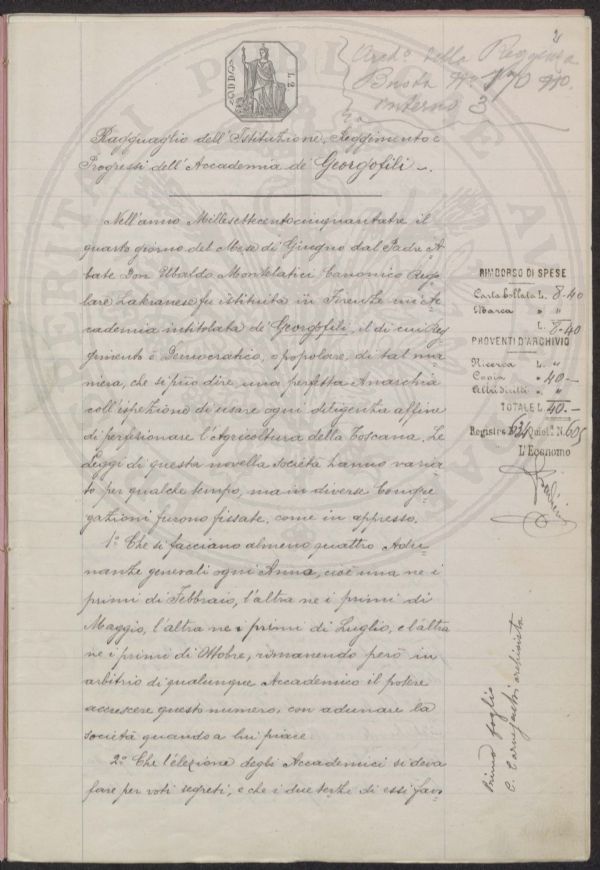 2
Arch.º della Reggenza
Busta Nº 170
interno 3
L. 2
Ragguaglio dell'Istituzione, Reggimento e
Progressi dell'Accademia de' Georgofili.
Nell'anno Millesettecentocinquantatre il
quarto giorno del Mese di Giugno dal Padre A-
bate Don Ubaldo Montelatici Canonico Rego-
lare Lateranese fu istituita in Firenze un'Ac-
cademia intitolata de' Georgofili, il di cui Reg-
gimento è Democratico, o popolare, di tal ma-
niera, che si può dire, una perfetta Anarchia
coll'ispezione di usare ogni diligenza affine
di perfezionare l'Agricoltura della Toscana. Le
Leggi di questa novella società hanno varia-
to per qualche tempo, ma in diverse Congre-
gazioni furono fissate, come in appresso.
1º Che si facciano almeno quattro Adu-
nanze generali ogni Anno, cioè una ne i
primi di Febbraio, l'altra ne i primi di
Maggio, l'altra ne i primi di Luglio, e l'altra
ne i primi di Ottobre, rimanendo però in
arbitrio di qualunque Accademico il potere
accrescere questo numero, con adunare la
società quando a lui piace
2º Che l'elezione degli Accademici si deva
fare per voti segreti, e che i due terzi di essi favo-
RIMBORSO DI SPESE
Carta bollata L. 8-40
Marca " "
L. 8-40
PROVENTI D'ARCHIVIO
Ricerca L. "
Copia " 40 —
Altri diritti " "
TOTALE L. 40. —
Registro 634 Quiet. N. 605
L'Economo
Primo foglio
C. Carnesecchi archivista